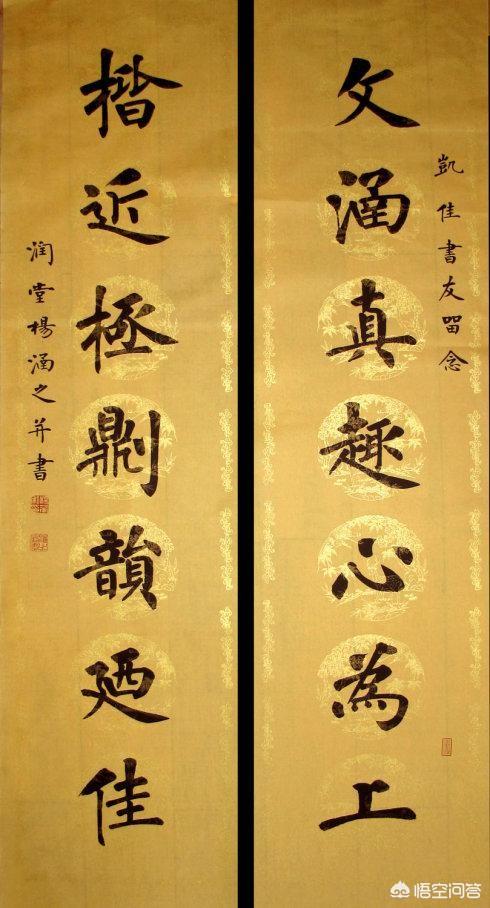 凱佳書友留念
文涵真趣心為上
楷近極𠟭韻廼佳
潤堂楊涵之并書
悟空问答